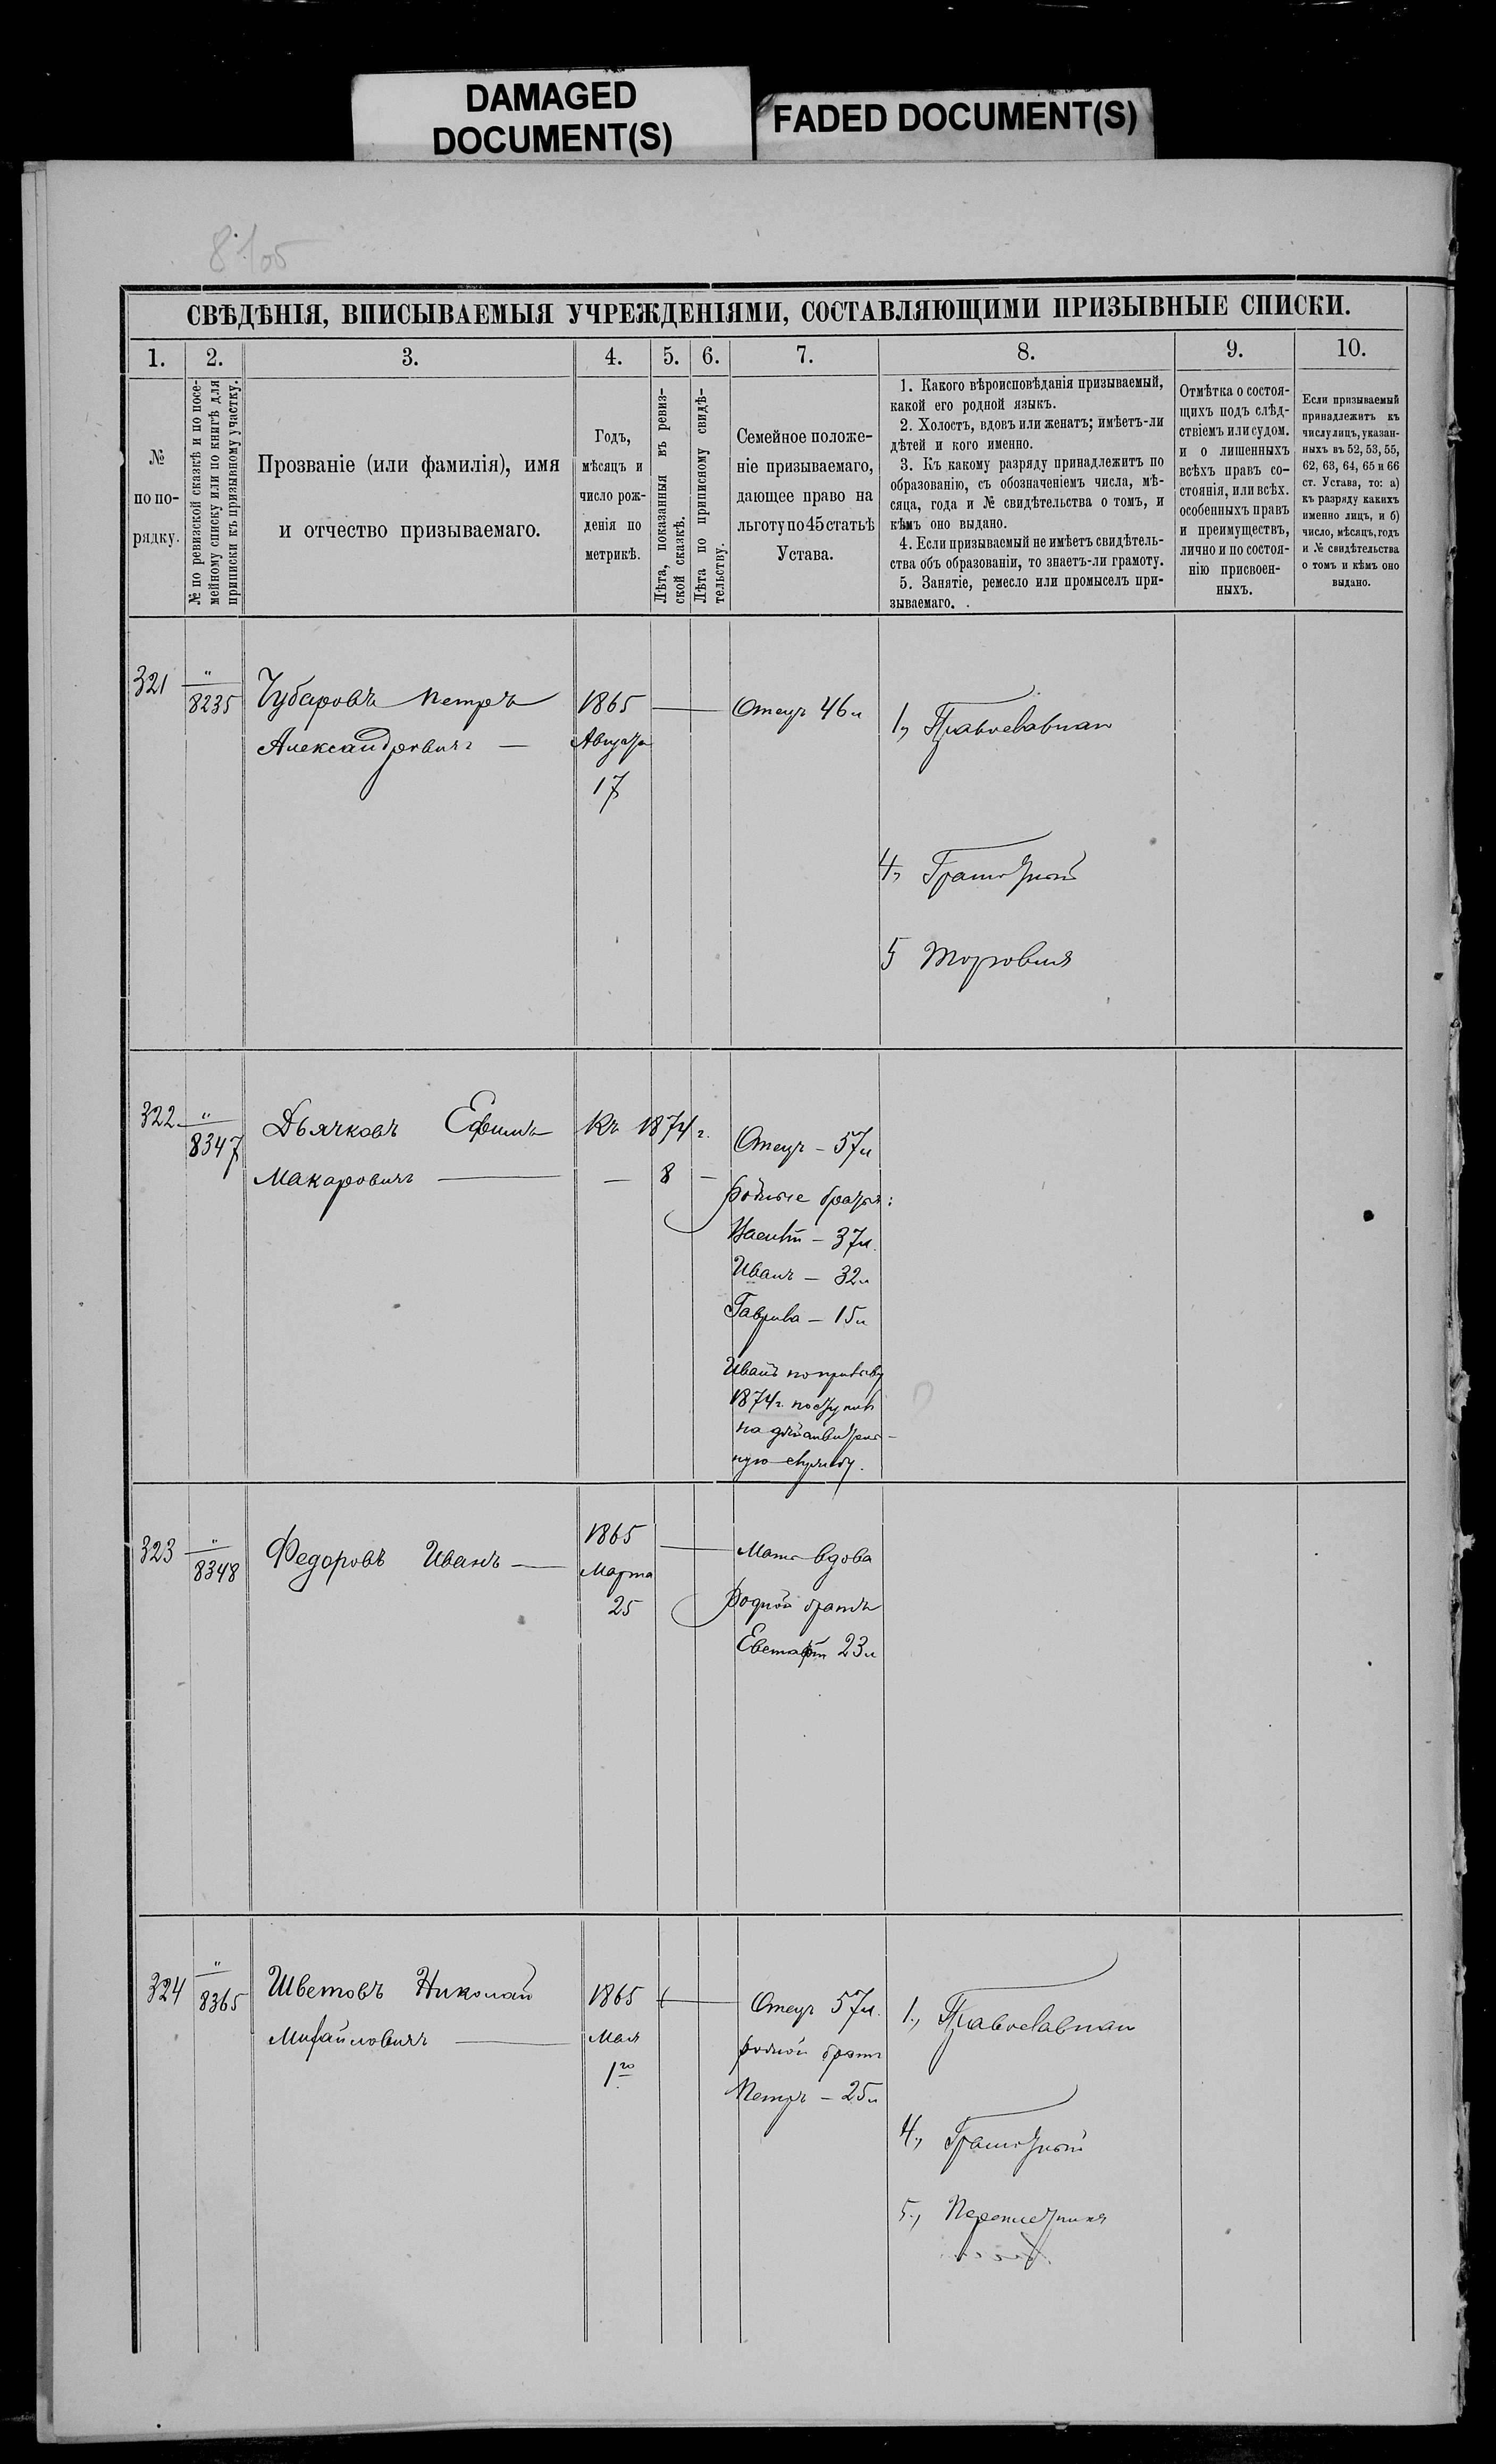 DAMAGED
DOCUMENT(S)
FADED DOCUMENT(S)
СВѢДѢНІЯ, ВПИСЫВАЕМЫЯ УЧРЕЖДЕНІЯМИ, СОСТАВЛЯЮЩИМИ ПРИЗЫВНЫЕ СПИСКИ.
1.
2.
3.
4.
5.
6.
7.
8.
9.
10.
№
по по-
рядку.
№ по ревизской сказкѣ и по посе-
мейному списку или по книгѣ для
приписки къ призывному участку.
Прозваніе (или фамилія), имя
и отчество призываемаго.
Годъ,
мѣсяцъ и
число рож-
денія по
метрикѣ.
Лѣта, показанныя въ ревиз-
ской сказкѣ.
Лѣта по приписному свидѣ-
тельству.
Семейное положе-
ніе призываемаго,
дающее право на
льготу по 45 статьѣ
Устава.
1. Какого вѣроисповѣданія призываемый,
какой его родной языкъ.
2. Холостъ, вдовъ или женатъ; имѣетъ-ли
дѣтей и кого именно.
3. Къ какому разряду принадлежитъ по
образованію, съ обозначеніемъ числа, мѣ-
сяца, года и № свидѣтельства о томъ, и
кѣмъ оно выдано.
4. Если призываемый не имѣетъ свидѣтель-
ства объ образованіи, то знаетъ-ли грамоту.
5. Занятіе, ремесло или промыселъ при-
зываемаго.
Отмѣтка о состоя-
щихъ подъ слѣд-
ствіемъ или судом.
и о лишенныхъ
всѣхъ правъ со-
стоянія, или всѣх.
особенныхъ правъ
и преимуществъ,
лично и по состоя-
нію присвоен-
ныхъ.
Если призываемый
принадлежитъ къ
числу лицъ, указан-
ныхъ въ 52, 53, 55,
62, 63, 64, 65 и 66
ст. Устава, то: а)
къ разряду какихъ
именно лицъ, и б)
число, мѣсяцъ, годъ
и № свидѣтельства
о томъ и кѣмъ оно
выдано.
321
"
8235
Чубаровъ Петръ
Александровичъ —
1865
Августа
17
Отецъ 46 л
1, Православнаго
4, Грамотный
5 Торговля
322
"
8347
Дьячковъ Ефимъ
Макаровичъ —
Къ 1874 г.
— 8 —
Отецъ – 57 л
родные братья:
– 37 л.
Иванъ – 32 л
Гаврила – 15 л
Иванъ по призыву
1874 г. поступилъ
на дѣйствитель-
ную службу.
323
"
8348
Федоровъ Иванъ —
1865
Марта
25
Мать вдова
Родной братъ
Евстафій 23 л
324
"
8365
Шветовъ Николай
Михайловичъ —
1865
Мая
1го
Отецъ 57 л.
родной братъ
Петръ – 25 л
1., Православнаго
4., Грамотный
5., Переплетчикъ